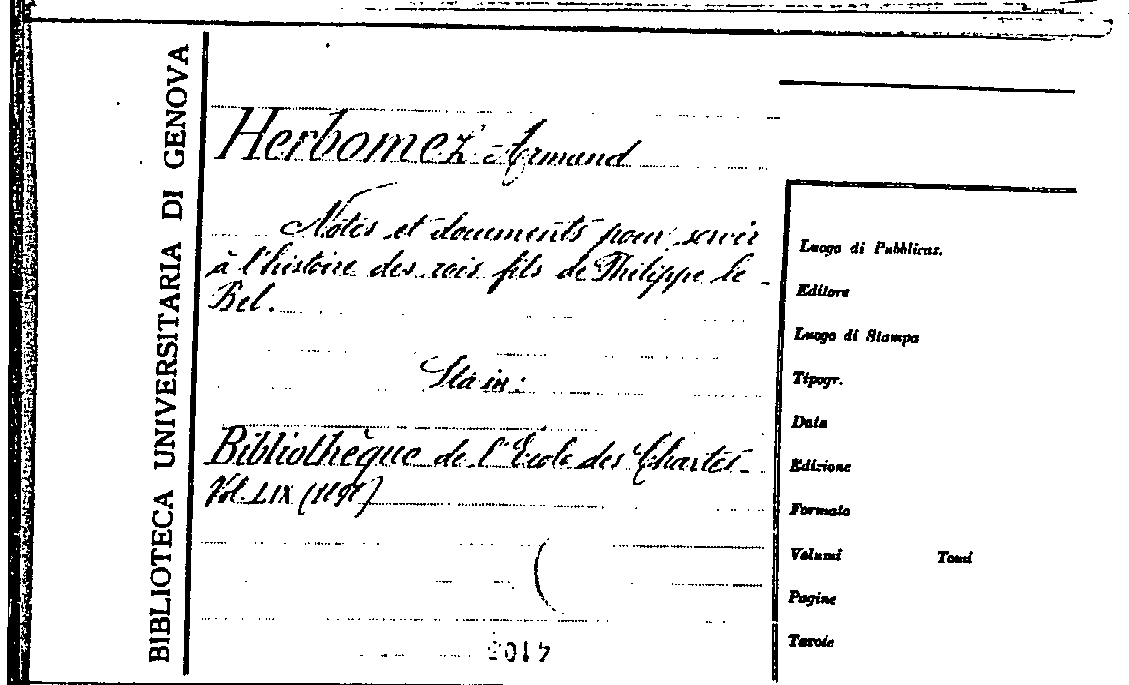 BIBLIOTECA UNIVERSITARIA DI GENOVA
Herbomez Armand
Notes et documents pour servir
à l'histoire des rois fils de Philippe le
Bel.
Sta in:
Bibliothèque de l'École des Chartes
Vol. LIX (1898)
Luogo di Pubblicaz.
Editore
Luogo di Stampa
Tipogr.
Data
Edizione
Formato
Volumi Tomi
Pagine
Tavole